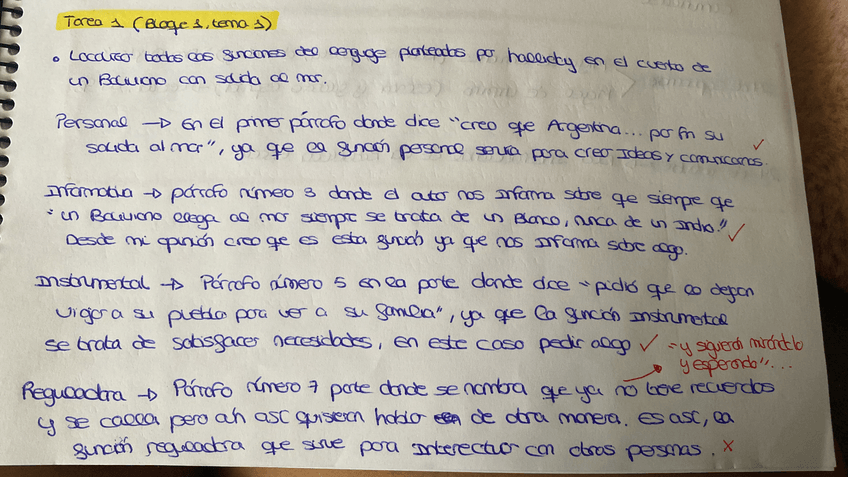 Tarea 1 (Bloque 1, tema 1)
• Localizar todas las funciones del lenguaje planteadas por halliday en el cuento de
un Boliviano con salida al mar.
Personal → En el primer párrafo donde dice "creo que Argentina... por fin su
salida al mar", ya que la función personal serviría para crear ideas y comunicarnos. ✓
Informativa → párrafo número 3 donde el autor nos informa sobre que siempre que
"un Boliviano llega al mar siempre se trata de un Blanco, nunca de un Indio." ✓
Desde mi opinión creo que es esta función ya que nos informa sobre algo.
Instrumental → Párrafo número 5 en la parte donde dice "pidió que lo dejaran
a su pueblo para ver a su familia", ya que la función instrumental
se trata de satisfacer necesidades, en este caso pedir algo ✓
"y siguieron mirándolo
y esperando"...
Reguladora → Párrafo número 7 parte donde se nombra que ya no tiene recuerdos
y se calla pero aún así quisieran de otra manera. es así, la
función reguladora que sirve para interectuar con otras personas. ×